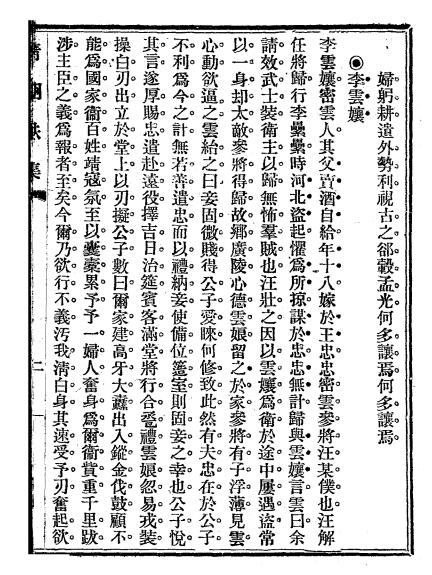 婦躬耕遣外勢利視古之郤穀孟光何多讓焉何多讓焉
◉李雲孃
李雲孃密雲人其父賣酒自給年十八嫁於王忠忠密雲參將汪某僕也汪解
任將歸行李纍纍時河北盜起懼爲所掠謀於忠忠無計歸與雲孃言雲曰余
請效武士裝衛主以歸無怖羣賊也汪壯之因以雲孃爲衛於途中屢遇盜常
以一身却大敵參將得歸故鄉廣陵心德雲娘留之於家參將有子浮薄見雲
心動欲逼之雲紿之曰妾固微賤得公子愛睐何修致此然有夫忠在於公子
不利爲今之計無若善遣忠而以禮納妾使備位簉室則固妾之幸也公子悅
其言遂厚賜忠遣赴遠役擇吉日治筵賓客滿堂將行合卺禮雲娘忽易戎裝
操白刃出立於堂上以刃擬公子數曰爾家建高牙大纛出入鏦金伐鼓顧不
能爲國家衞百姓靖寇氛至以囊槖累予予一婦人奮身爲爾衞貲重千里跋
涉主臣之義爲報者至矣今爾乃欲行不義汚我淸白身其速受予刃奮起欲
二